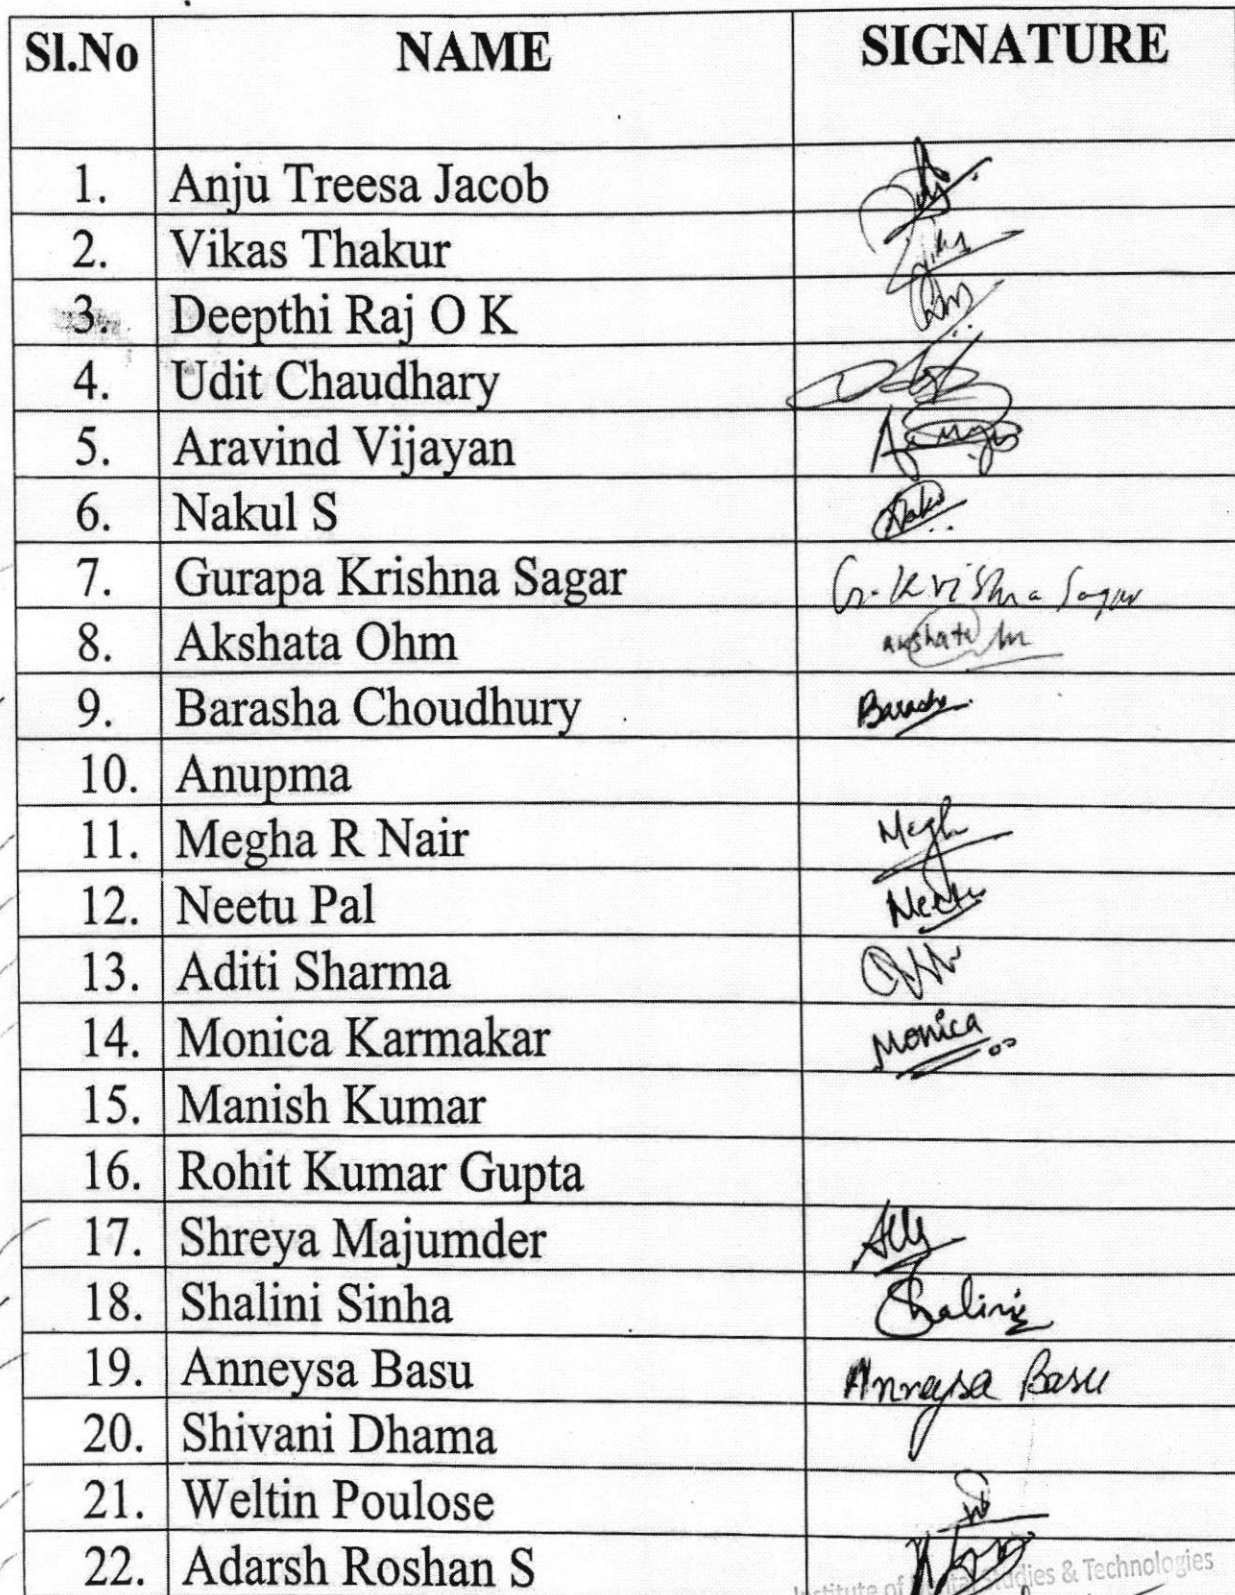 Sl.No NAME SIGNATURE
1. Anju Treesa Jacob
2. Vikas Thakur
3. Deepthi Raj O K
4. Udit Chaudhary
5. Aravind Vijayan
6. Nakul S
7. Gurapa Krishna Sagar G. Krishna Sagar
8. Akshata Ohm akshata
9. Barasha Choudhury Barasha
10. Anupma
11. Megha R Nair Megha
12. Neetu Pal Neetu
13. Aditi Sharma
14. Monica Karmakar Monica
15. Manish Kumar
16. Rohit Kumar Gupta
17. Shreya Majumder
18. Shalini Sinha Shalini
19. Anneysa Basu Anneysa Basu
20. Shivani Dhama
21. Weltin Poulose
22. Adarsh Roshan S
Institute of Studies & Technologies